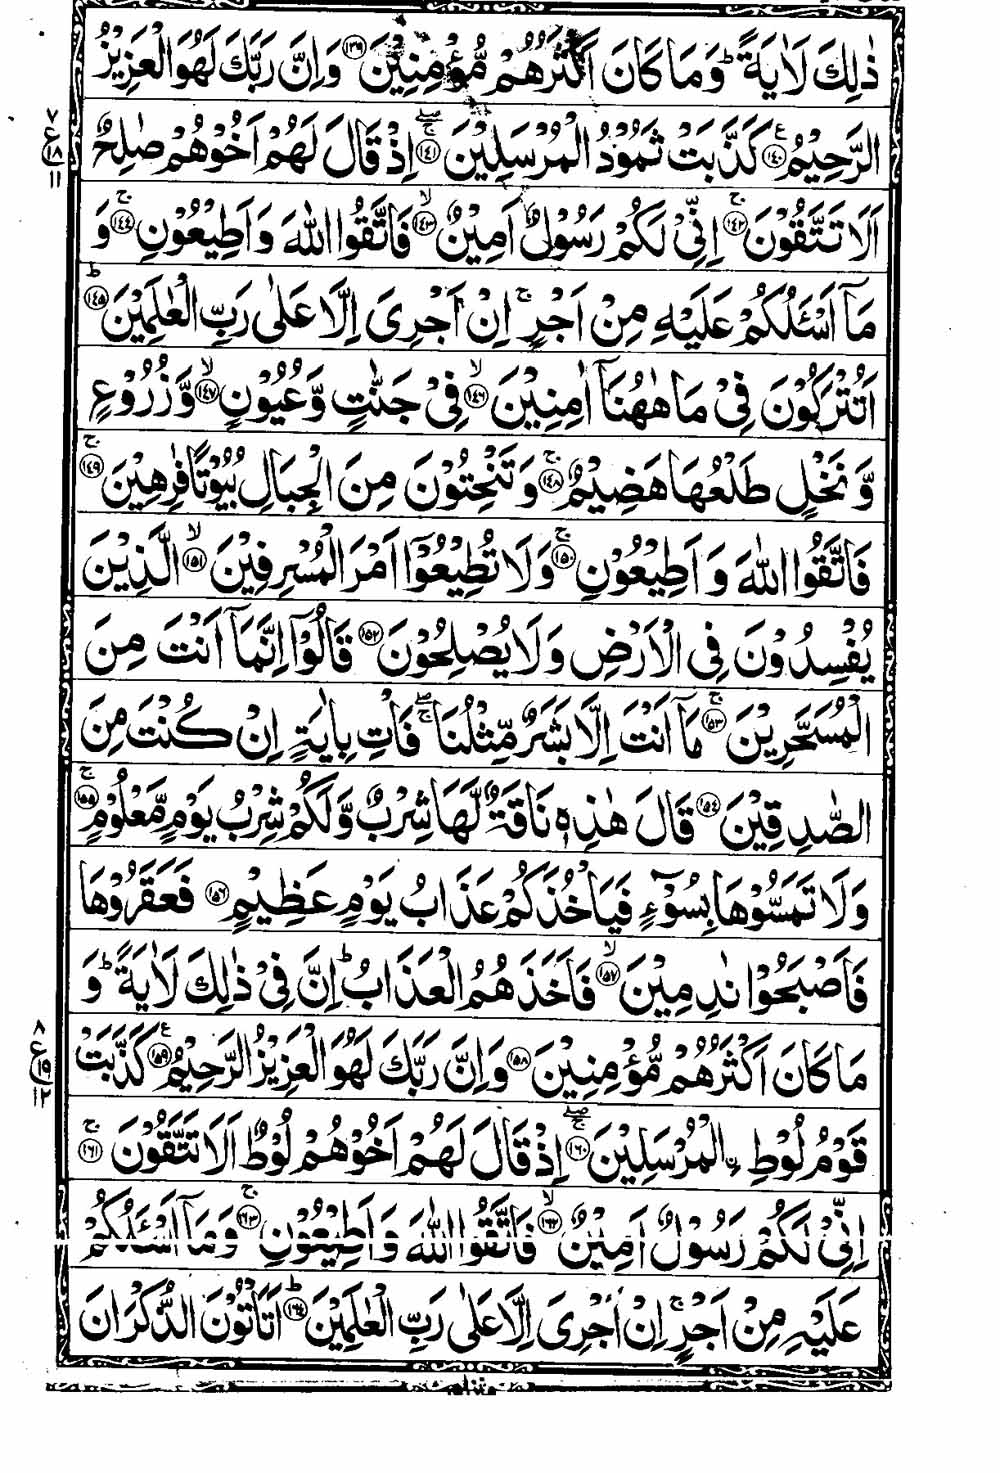 ذٰلِكَ لَاٰيَةً ؕ وَمَا كَانَ اَكْثَرُهُمْ مُّؤْمِنِيْنَ ﴿۱۳۹﴾ وَاِنَّ رَبَّكَ لَهُوَ الْعَزِيْزُ
الرَّحِيْمُ ﴿۱۴۰﴾ كَذَّبَتْ ثَمُوْدُ الْمُرْسَلِيْنَ ﴿۱۴۱﴾ اِذْ قَالَ لَهُمْ اَخُوْهُمْ صٰلِحٌ
اَلَا تَتَّقُوْنَ ﴿۱۴۲﴾ اِنِّيْ لَكُمْ رَسُوْلٌ اَمِيْنٌ ﴿۱۴۳﴾ فَاتَّقُوا اللّٰهَ وَاَطِيْعُوْنِ ﴿۱۴۴﴾ وَ
مَاۤ اَسْـَٔلُكُمْ عَلَيْهِ مِنْ اَجْرٍ ۚ اِنْ اَجْرِىَ اِلَّا عَلٰى رَبِّ الْعٰلَمِيْنَ ﴿۱۴۵﴾
اَتُتْرَكُوْنَ فِيْ مَا هٰهُنَاۤ اٰمِنِيْنَ ﴿۱۴۶﴾ فِيْ جَنّٰتٍ وَّعُيُوْنٍ ﴿۱۴۷﴾ وَّزُرُوْعٍ
وَّنَخْلٍ طَلْعُهَا هَضِيْمٌ ﴿۱۴۸﴾ وَتَنْحِتُوْنَ مِنَ الْجِبَالِ بُيُوْتًا فٰرِهِيْنَ ﴿۱۴۹﴾
فَاتَّقُوا اللّٰهَ وَاَطِيْعُوْنِ ﴿۱۵۰﴾ وَلَا تُطِيْعُوْۤا اَمْرَ الْمُسْرِفِيْنَ ﴿۱۵۱﴾ الَّذِيْنَ
يُفْسِدُوْنَ فِى الْاَرْضِ وَلَا يُصْلِحُوْنَ ﴿۱۵۲﴾ قَالُوْۤا اِنَّمَاۤ اَنْتَ مِنَ
الْمُسَحَّرِيْنَ ﴿۱۵۳﴾ مَاۤ اَنْتَ اِلَّا بَشَرٌ مِّثْلُنَا ۖۚ فَاْتِ بِاٰيَةٍ اِنْ كُنْتَ مِنَ
الصّٰدِقِيْنَ ﴿۱۵۴﴾ قَالَ هٰذِهٖ نَاقَةٌ لَّهَا شِرْبٌ وَّلَكُمْ شِرْبُ يَوْمٍ مَّعْلُوْمٍ ﴿۱۵۵﴾
وَلَا تَمَسُّوْهَا بِسُوْٓءٍ فَيَاْخُذَكُمْ عَذَابُ يَوْمٍ عَظِيْمٍ ﴿۱۵۶﴾ فَعَقَرُوْهَا
فَاَصْبَحُوْا نٰدِمِيْنَ ﴿۱۵۷﴾ فَاَخَذَهُمُ الْعَذَابُ ؕ اِنَّ فِيْ ذٰلِكَ لَاٰيَةً ؕ وَ
مَا كَانَ اَكْثَرُهُمْ مُّؤْمِنِيْنَ ﴿۱۵۸﴾ وَاِنَّ رَبَّكَ لَهُوَ الْعَزِيْزُ الرَّحِيْمُ ﴿۱۵۹﴾ كَذَّبَتْ
قَوْمُ لُوْطِ ِ۟الْمُرْسَلِيْنَ ﴿۱۶۰﴾ اِذْ قَالَ لَهُمْ اَخُوْهُمْ لُوْطٌ اَلَا تَتَّقُوْنَ ﴿۱۶۱﴾
اِنِّيْ لَكُمْ رَسُوْلٌ اَمِيْنٌ ﴿۱۶۲﴾ فَاتَّقُوا اللّٰهَ وَاَطِيْعُوْنِ ﴿۱۶۳﴾ وَمَاۤ اَسْـَٔلُكُمْ
عَلَيْهِ مِنْ اَجْرٍ ۚ اِنْ اَجْرِىَ اِلَّا عَلٰى رَبِّ الْعٰلَمِيْنَ ﴿۱۶۴﴾ اَتَاْتُوْنَ الذُّكْرَانَ
۷ ع ۱۸ ۱۱
۸ ع ۱۹ ۱۲